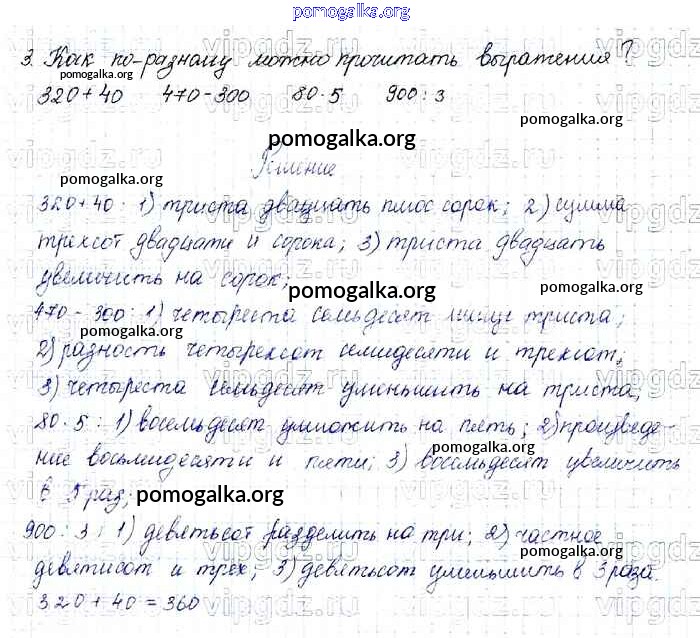 pomogalka.org
3. Как по-разному можно прочитать выражения?
pomogalka.org
320 + 40 470 - 300 80 · 5 900 : 3
pomogalka.org
pomogalka.org
Решение
pomogalka.org
320+40 : 1) триста двадцать плюс сорок; 2) сумма
трехсот двадцати и сорока; 3) триста двадцать
увеличить на сорок;
pomogalka.org
470 - 300 : 1) четыреста семьдесят минус триста;
pomogalka.org
2) разность четырехсот семидесяти и трехсот;
3) четыреста семьдесят уменьшить на триста;
80 · 5 : 1) восемьдесят умножить на пять; 2) произведе-
pomogalka.org
ние восьмидесяти и пяти; 3) восемьдесят увеличить
в 5 раз;
pomogalka.org
900 : 3 : 1) девятьсот разделить на три; 2) частное
pomogalka.org
девятисот и трех; 3) девятьсот уменьшить в 3 раза.
320 + 40 = 360
pomogalka.org
vipgdz.ru